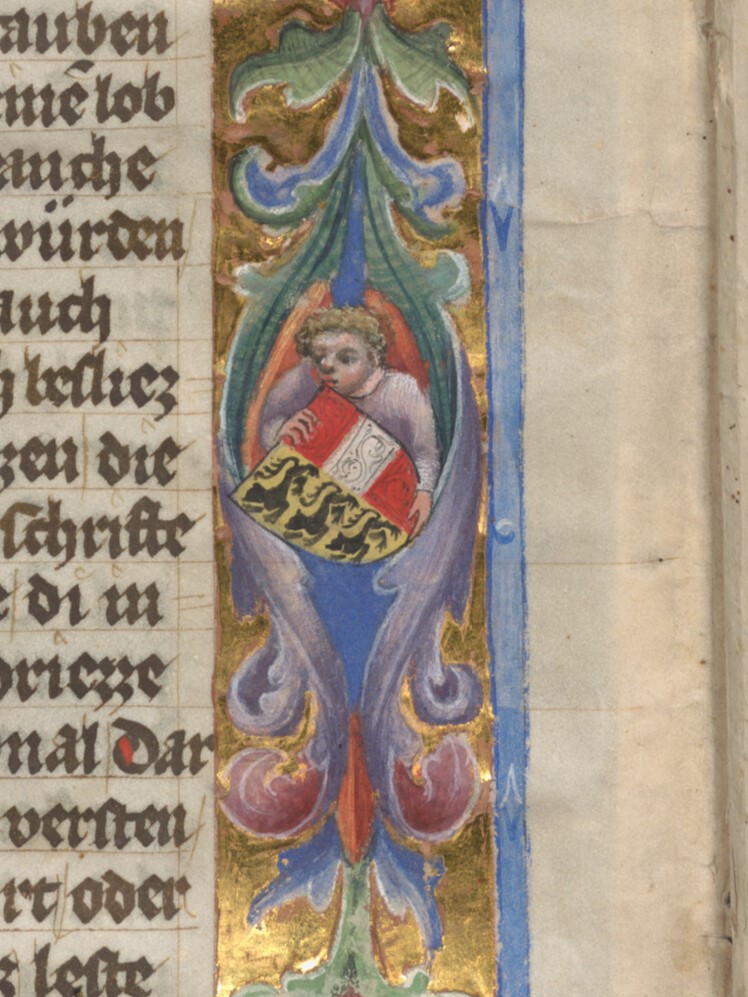 auben
emē lob
auche
würden
auch
h besliez
zen die
schrifte
e di in
briezze
nal Dar
versten
rt oder
z leste